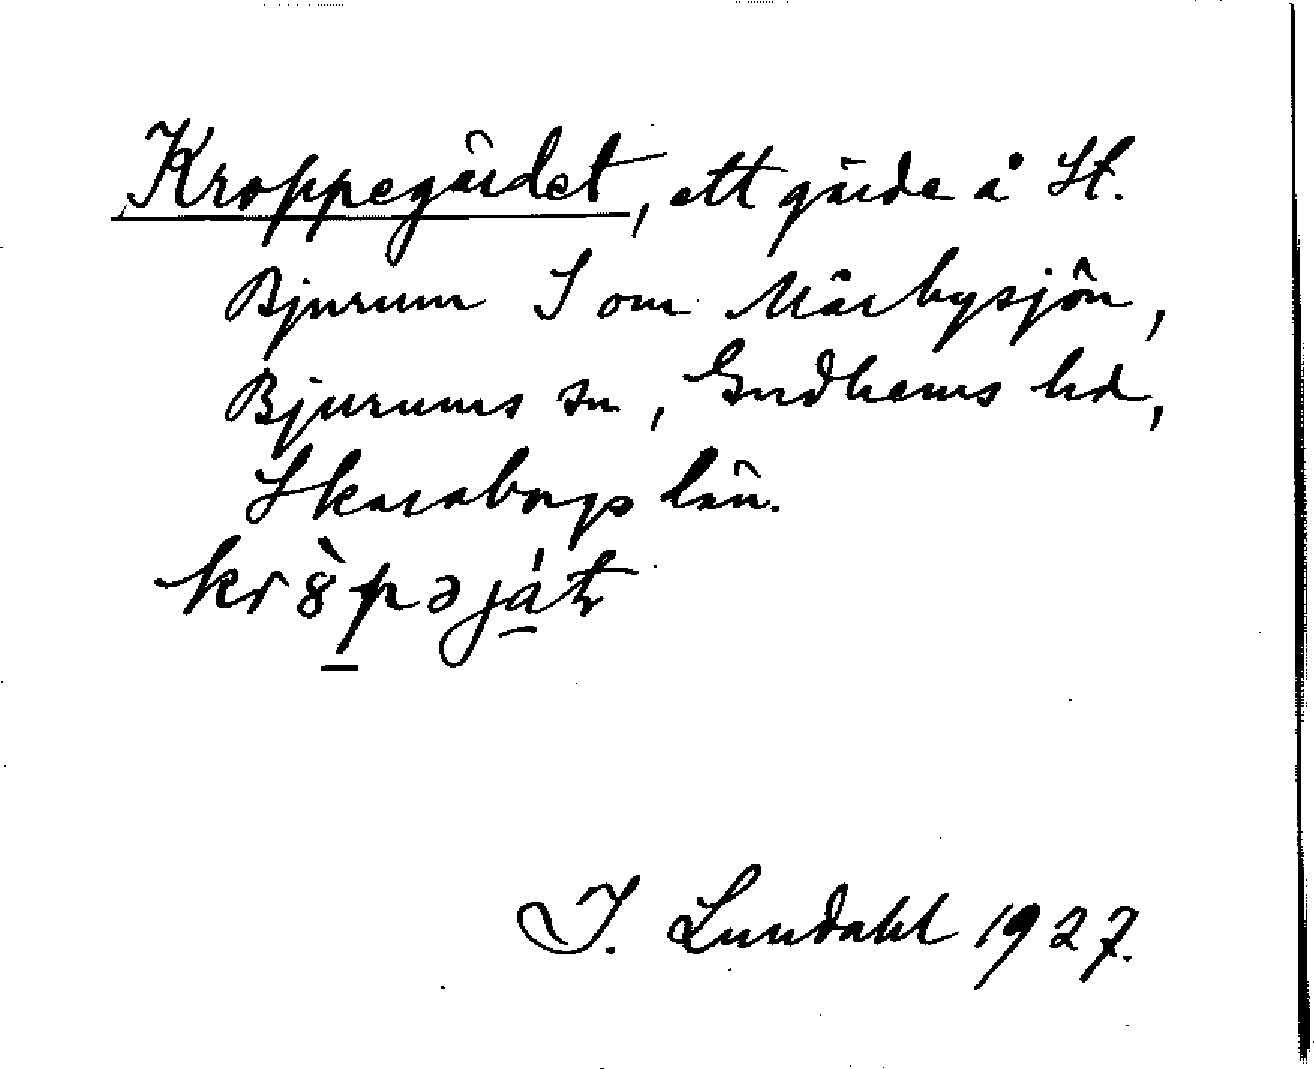 Kroppegärdet, ett gärde å St.
Bjurum S om Märbysjön,
Bjurums sn, Gudhems hd,
Skaraborgs län.
I. Lundahl 1927.